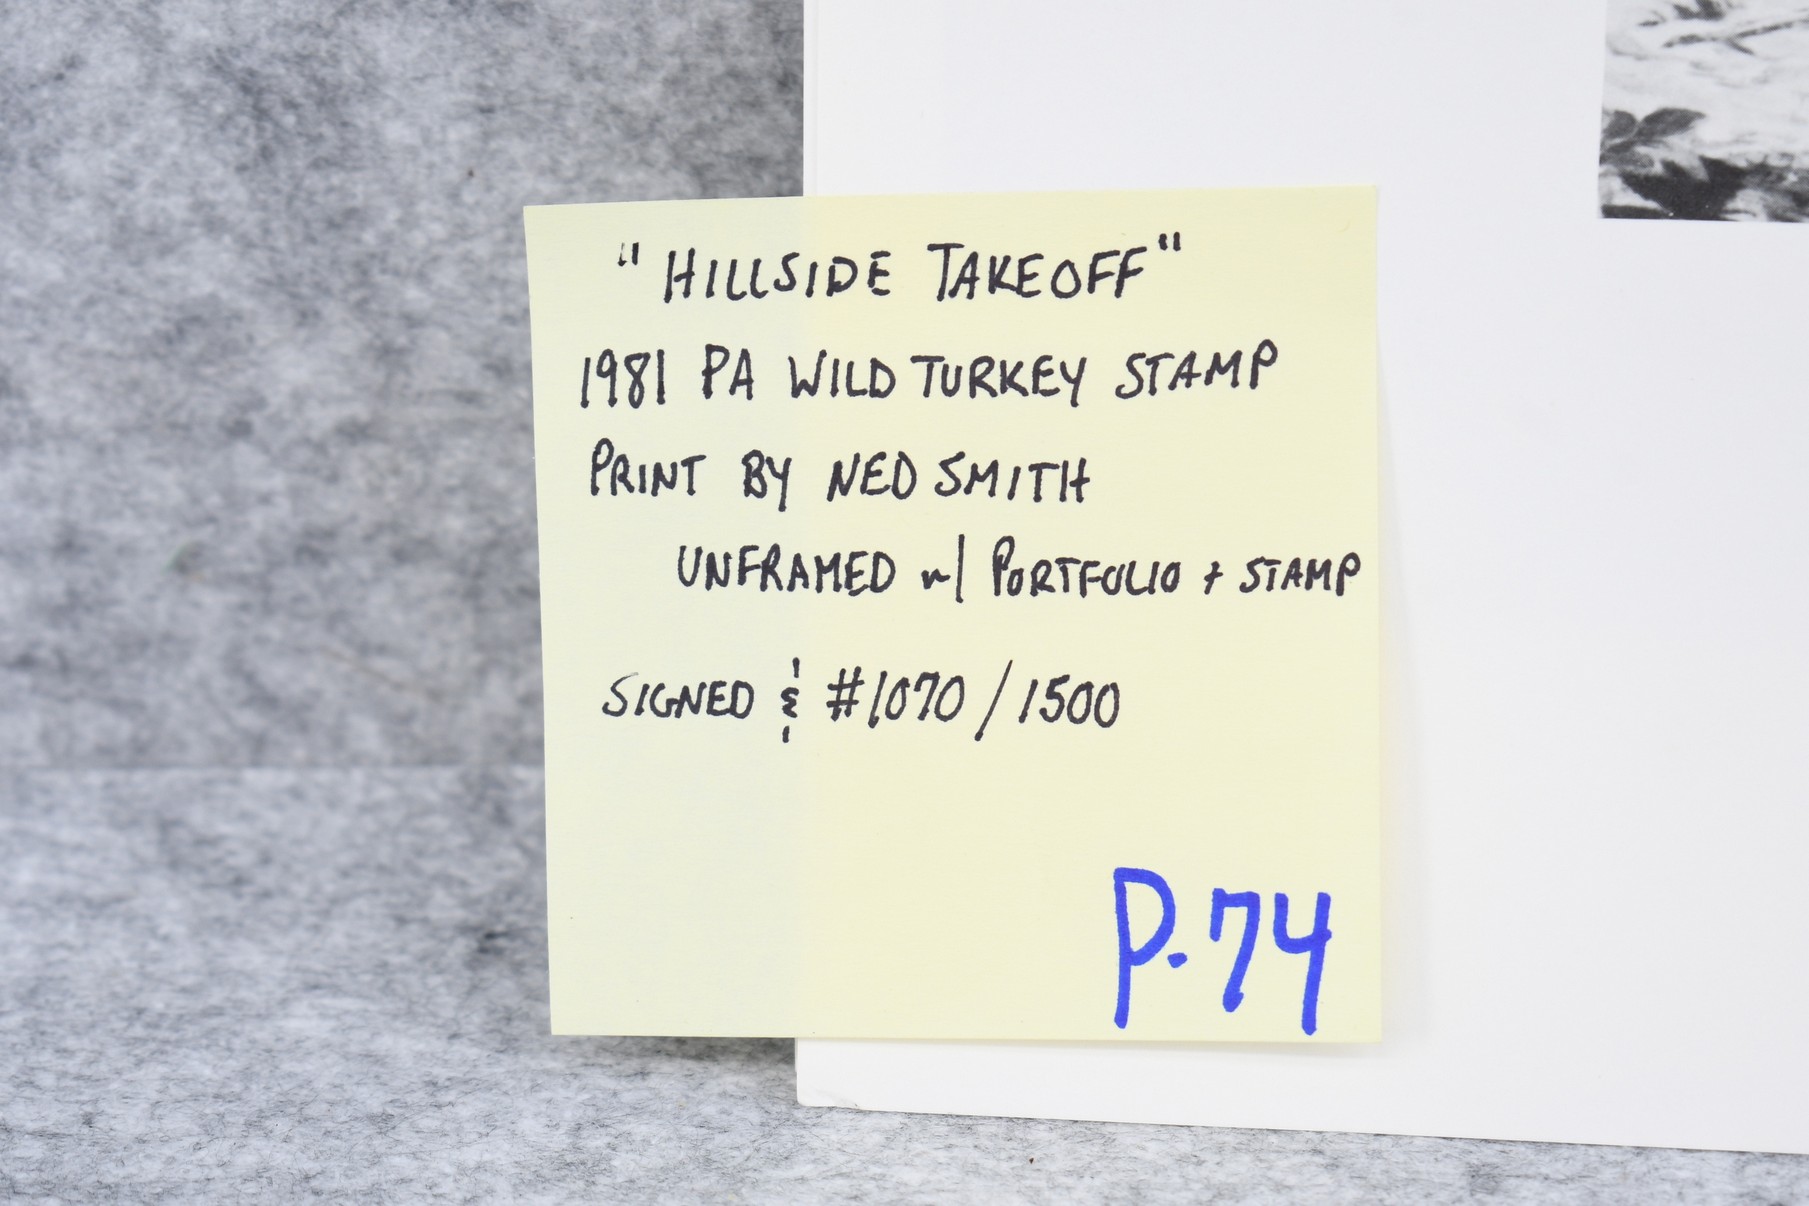 "HILLSIDE TAKEOFF"
1981 PA WILD TURKEY STAMP
PRINT BY NED SMITH
UNFRAMED w/ PORTFOLIO + STAMP
SIGNED & #1070/1500
P.74